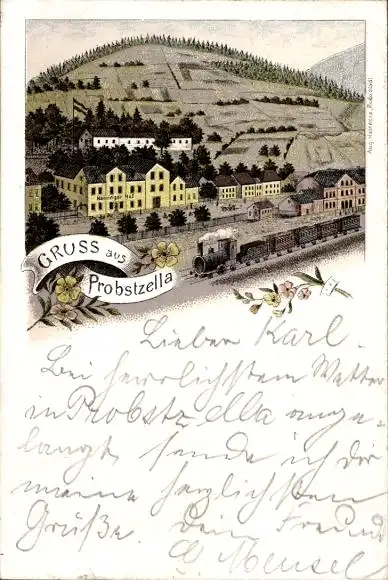 GRUSS aus
Probstzella
Lieber Karl.
Bei herrlichstem Wetter
in Probstzella ange-
langt, sende ich dir
meine herzlichsten
Grüße. Dein Freund
G. Mensel